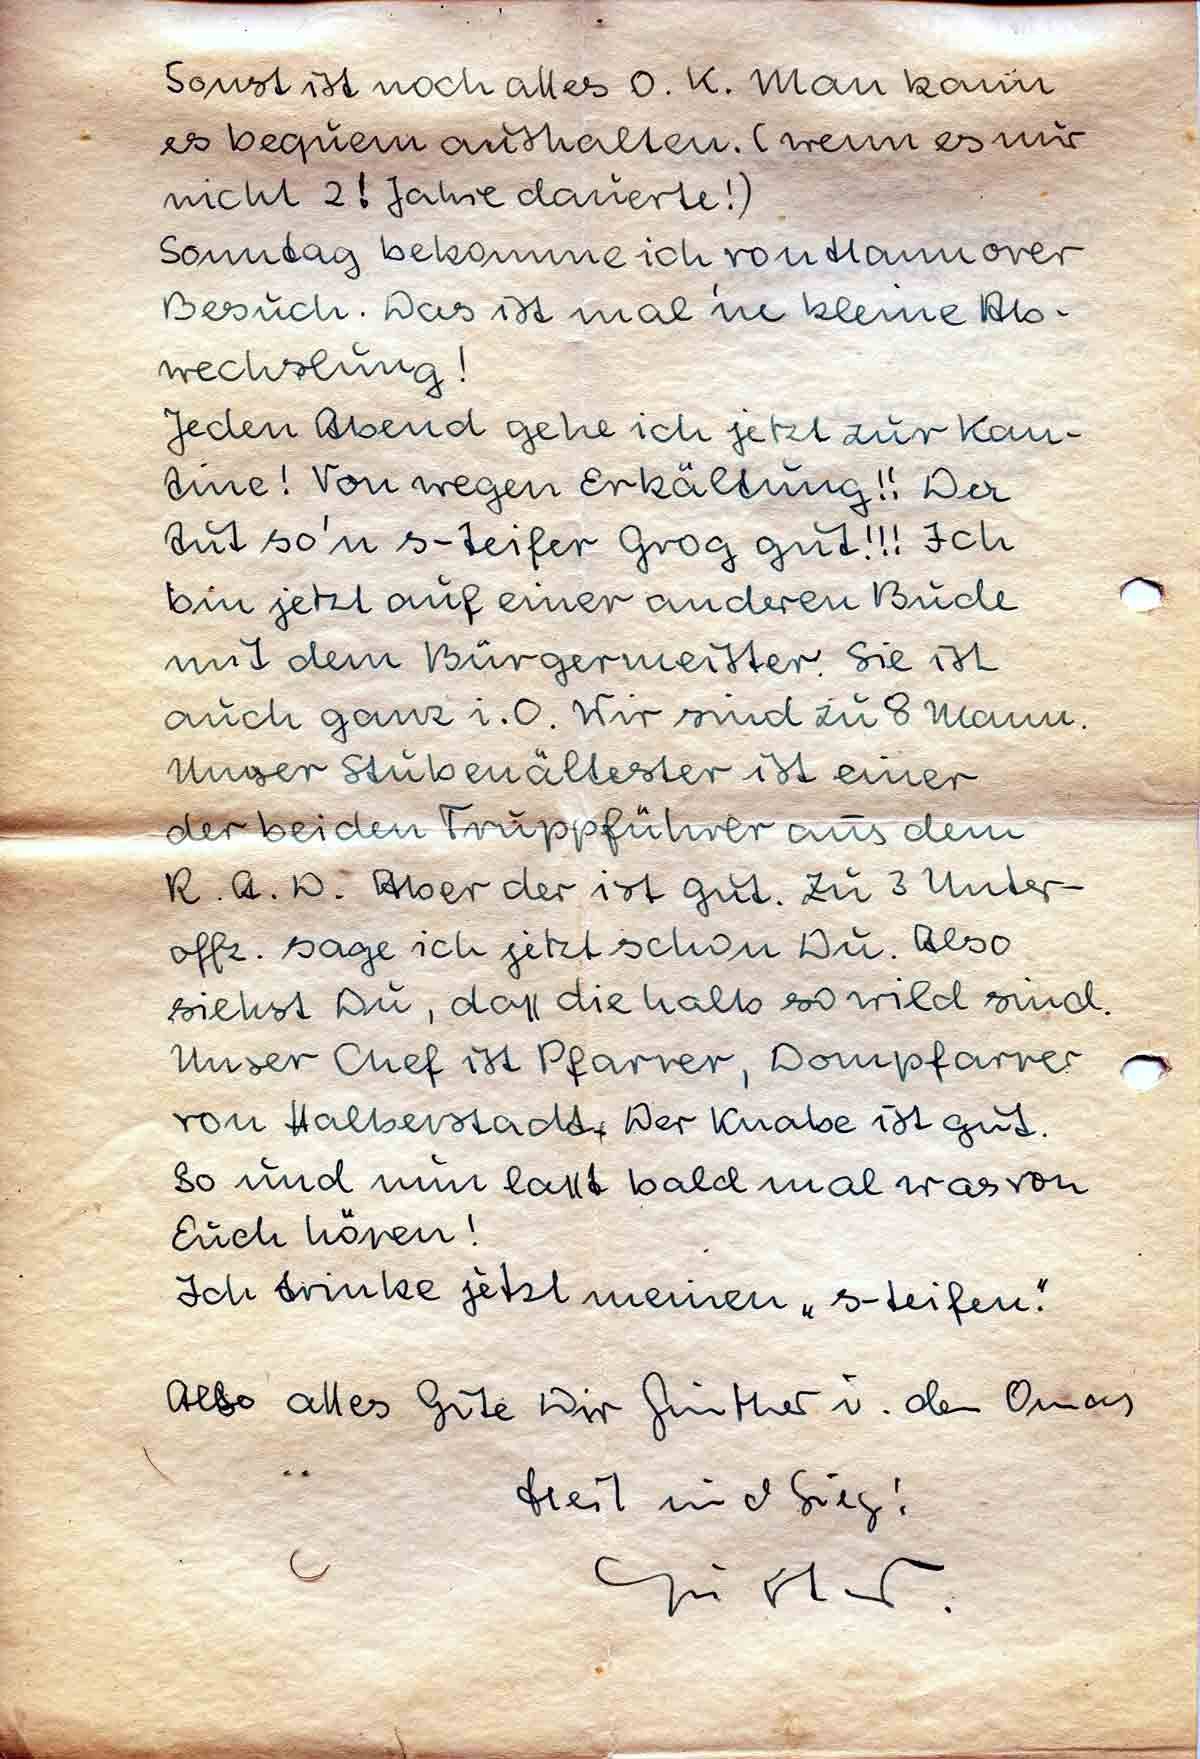 Sonst ist noch alles O. K. Man kann
es bequem aushalten. (wenn es nur
nicht 2! Jahre dauerte!)
Sonntag bekomme ich von Hannover
Besuch. Das ist mal 'ne kleine Ab-
wechslung!
Jeden Abend gehe ich jetzt zur Kan-
tine! Von wegen Erkältung!! Da
tut so'n s-teifer Grog gut!!! Ich
bin jetzt auf einer anderen Bude
mit dem Bürgermeister. Sie ist
auch ganz i.O. Wir sind zu 8 Mann.
Unser Stubenältester ist einer
der beiden Truppführer aus dem
R. A. D. Aber der ist gut. Zu 3 Unter-
offz. sage ich jetzt schon Du. Also
siehst Du, daß die halb so wild sind.
Unser Chef ist Pfarrer, Dompfarrer
von Halberstadt. Der Knabe ist gut.
So und nun laßt bald mal was von
Euch hören!
Ich trinke jetzt meinen „s-teifen."
Also alles Gute Dir Günther u. den Omas
Heil und Sieg!
Günther.